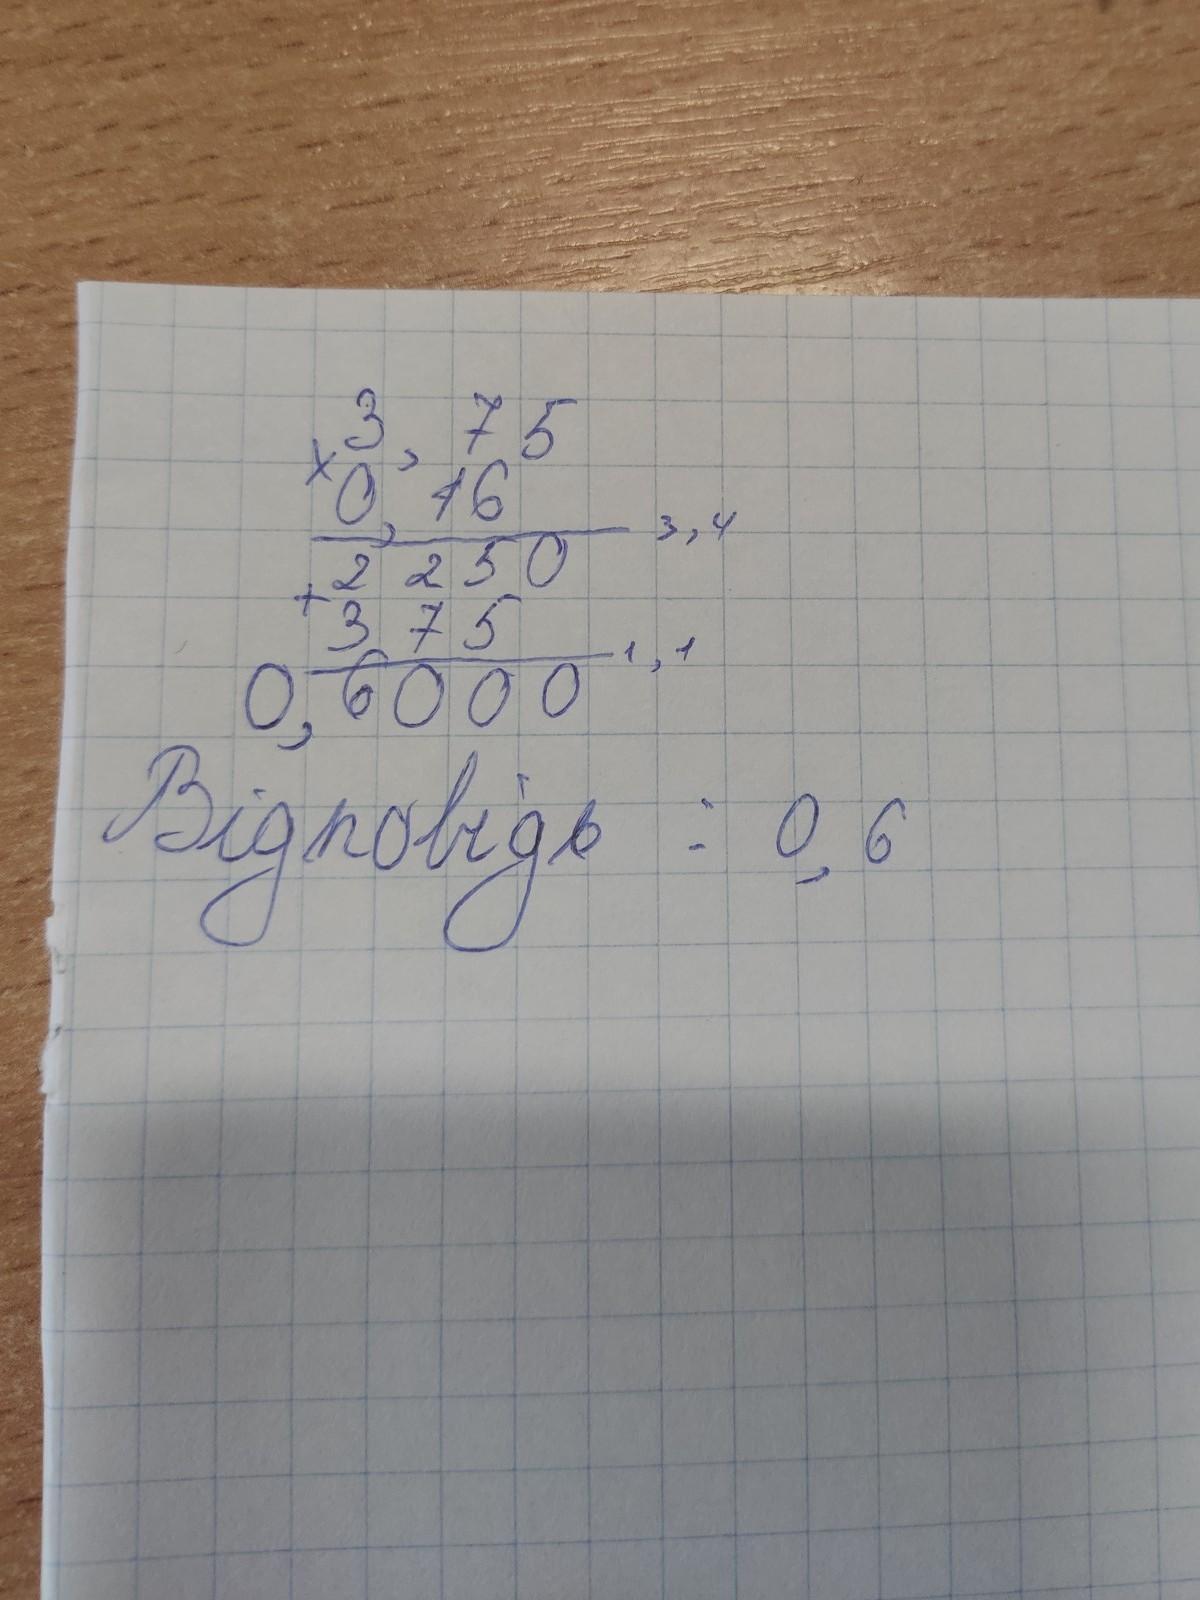 3,75
× 0,16
3,4
2250
+ 375
1,1
0,6000
Відповідь : 0,6